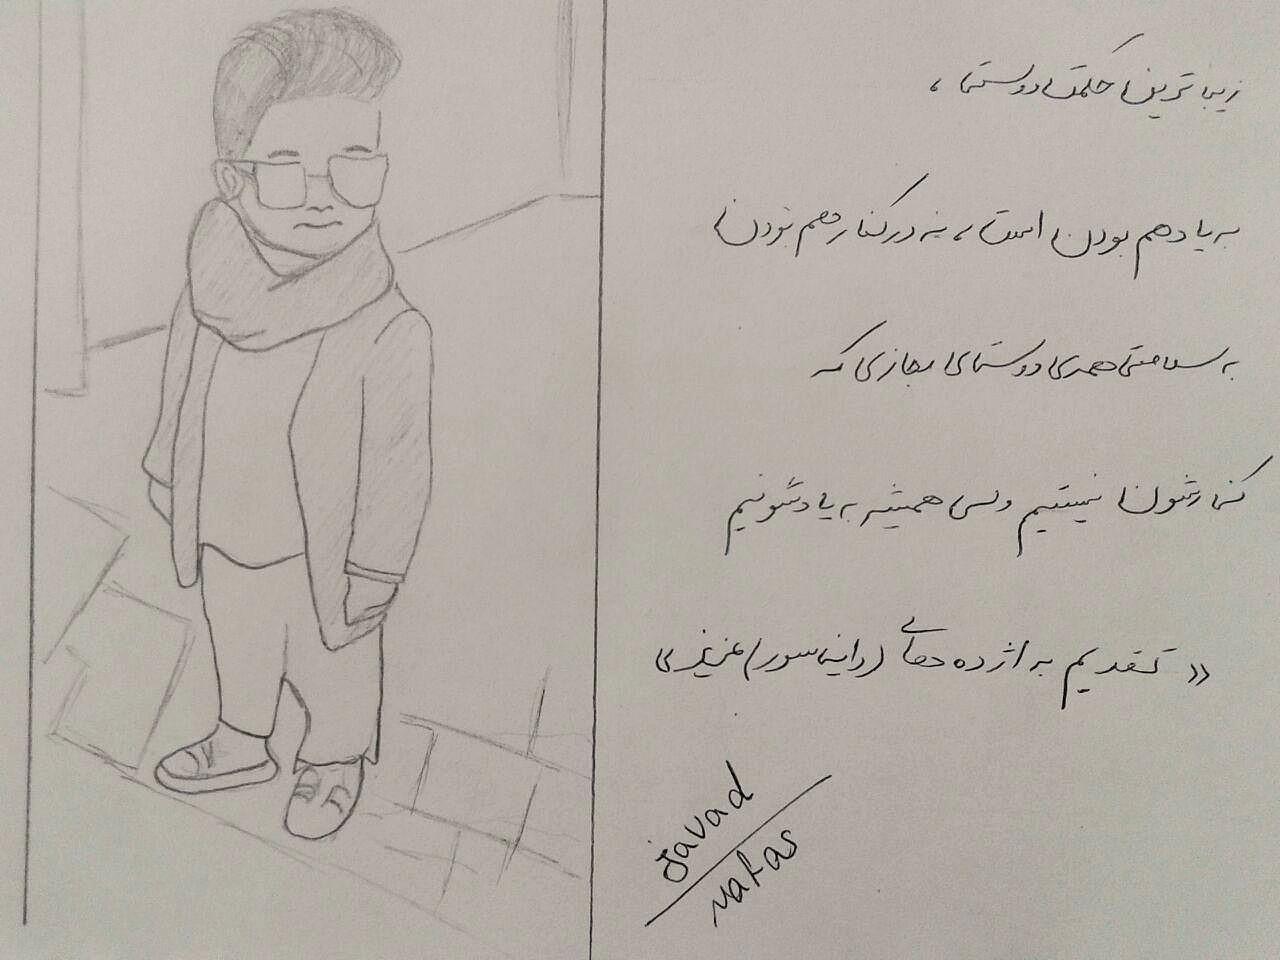 زیباترین حکمت دوستی ،
به یاد هم بودن است ، نه در کنار هم بودن
به سلامتی همه‌ی دوستای مجازی که
کنارشون نیستیم ولی همیشه به یادشونیم
« تقدیم به اژده‌های (داینا‌سور)
javad